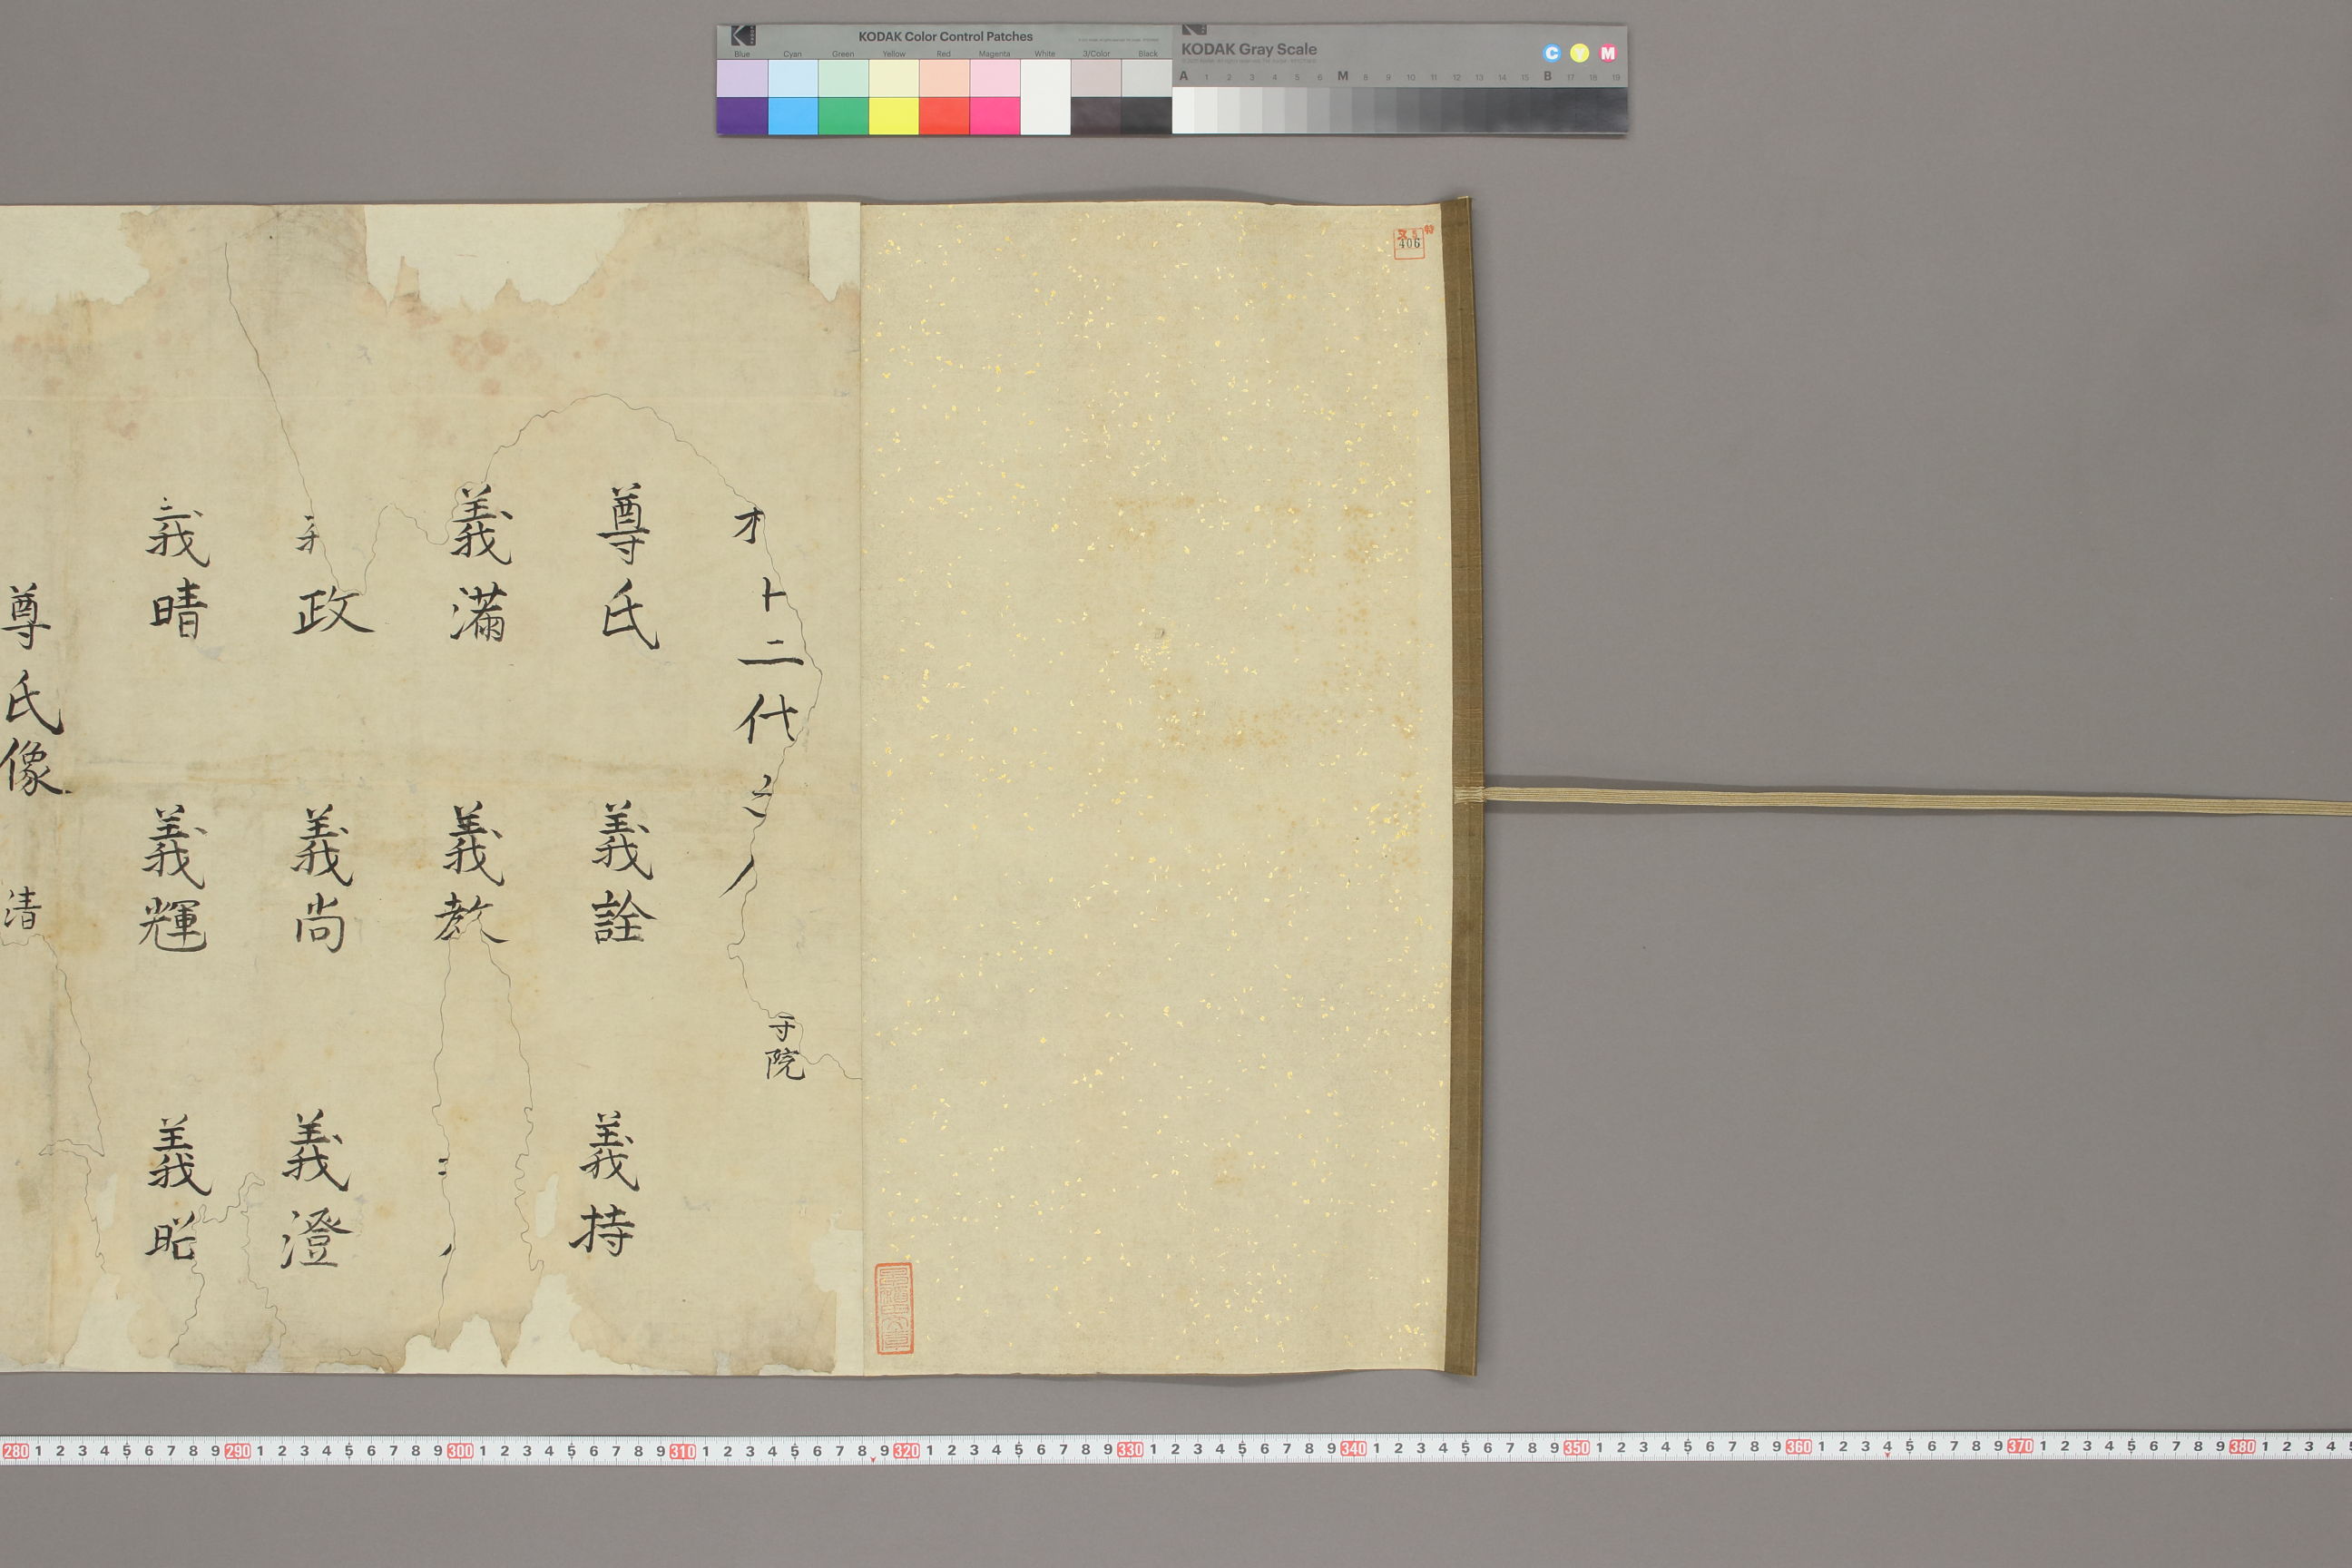 二代
尊氏 義詮 義持
義滿 義教
政 義尚 義澄
義晴 義輝 義昭
尊氏像 清
院
406
KODAK Color Control Patches
Blue Cyan Green Yellow Red Magenta White 3/Color Black
KODAK Gray Scale
C Y M
A 1 2 3 4 5 6 M 8 9 10 11 12 13 14 15 B 17 18 19
280 1 2 3 4 5 6 7 8 9 290 1 2 3 4 5 6 7 8 9 300 1 2 3 4 5 6 7 8 9 310 1 2 3 4 5 6 7 8 9 320 1 2 3 4 5 6 7 8 9 330 1 2 3 4 5 6 7 8 9 340 1 2 3 4 5 6 7 8 9 350 1 2 3 4 5 6 7 8 9 360 1 2 3 4 5 6 7 8 9 370 1 2 3 4 5 6 7 8 9 380 1 2 3 4